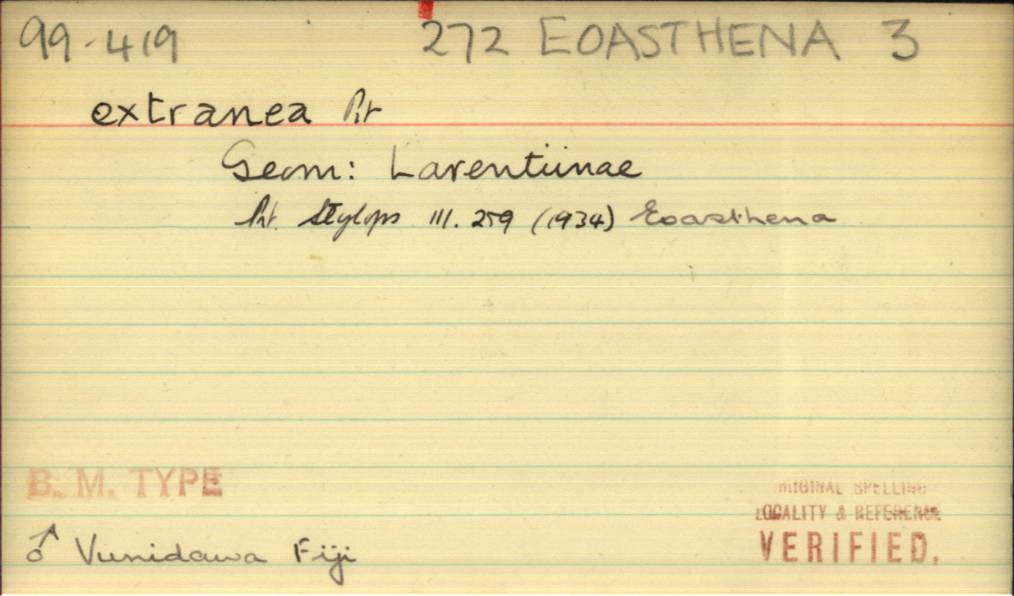 99-419 272 EOASTHENA 3
extranea Prt
Geom: Larentiinae
Prt. Stylops III. 259 (1934) Eoasthena
B. M. TYPE
ORIGINAL SPELLING
LOCALITY & REFERENCE
VERIFIED.
♂ Vunidawa Fiji